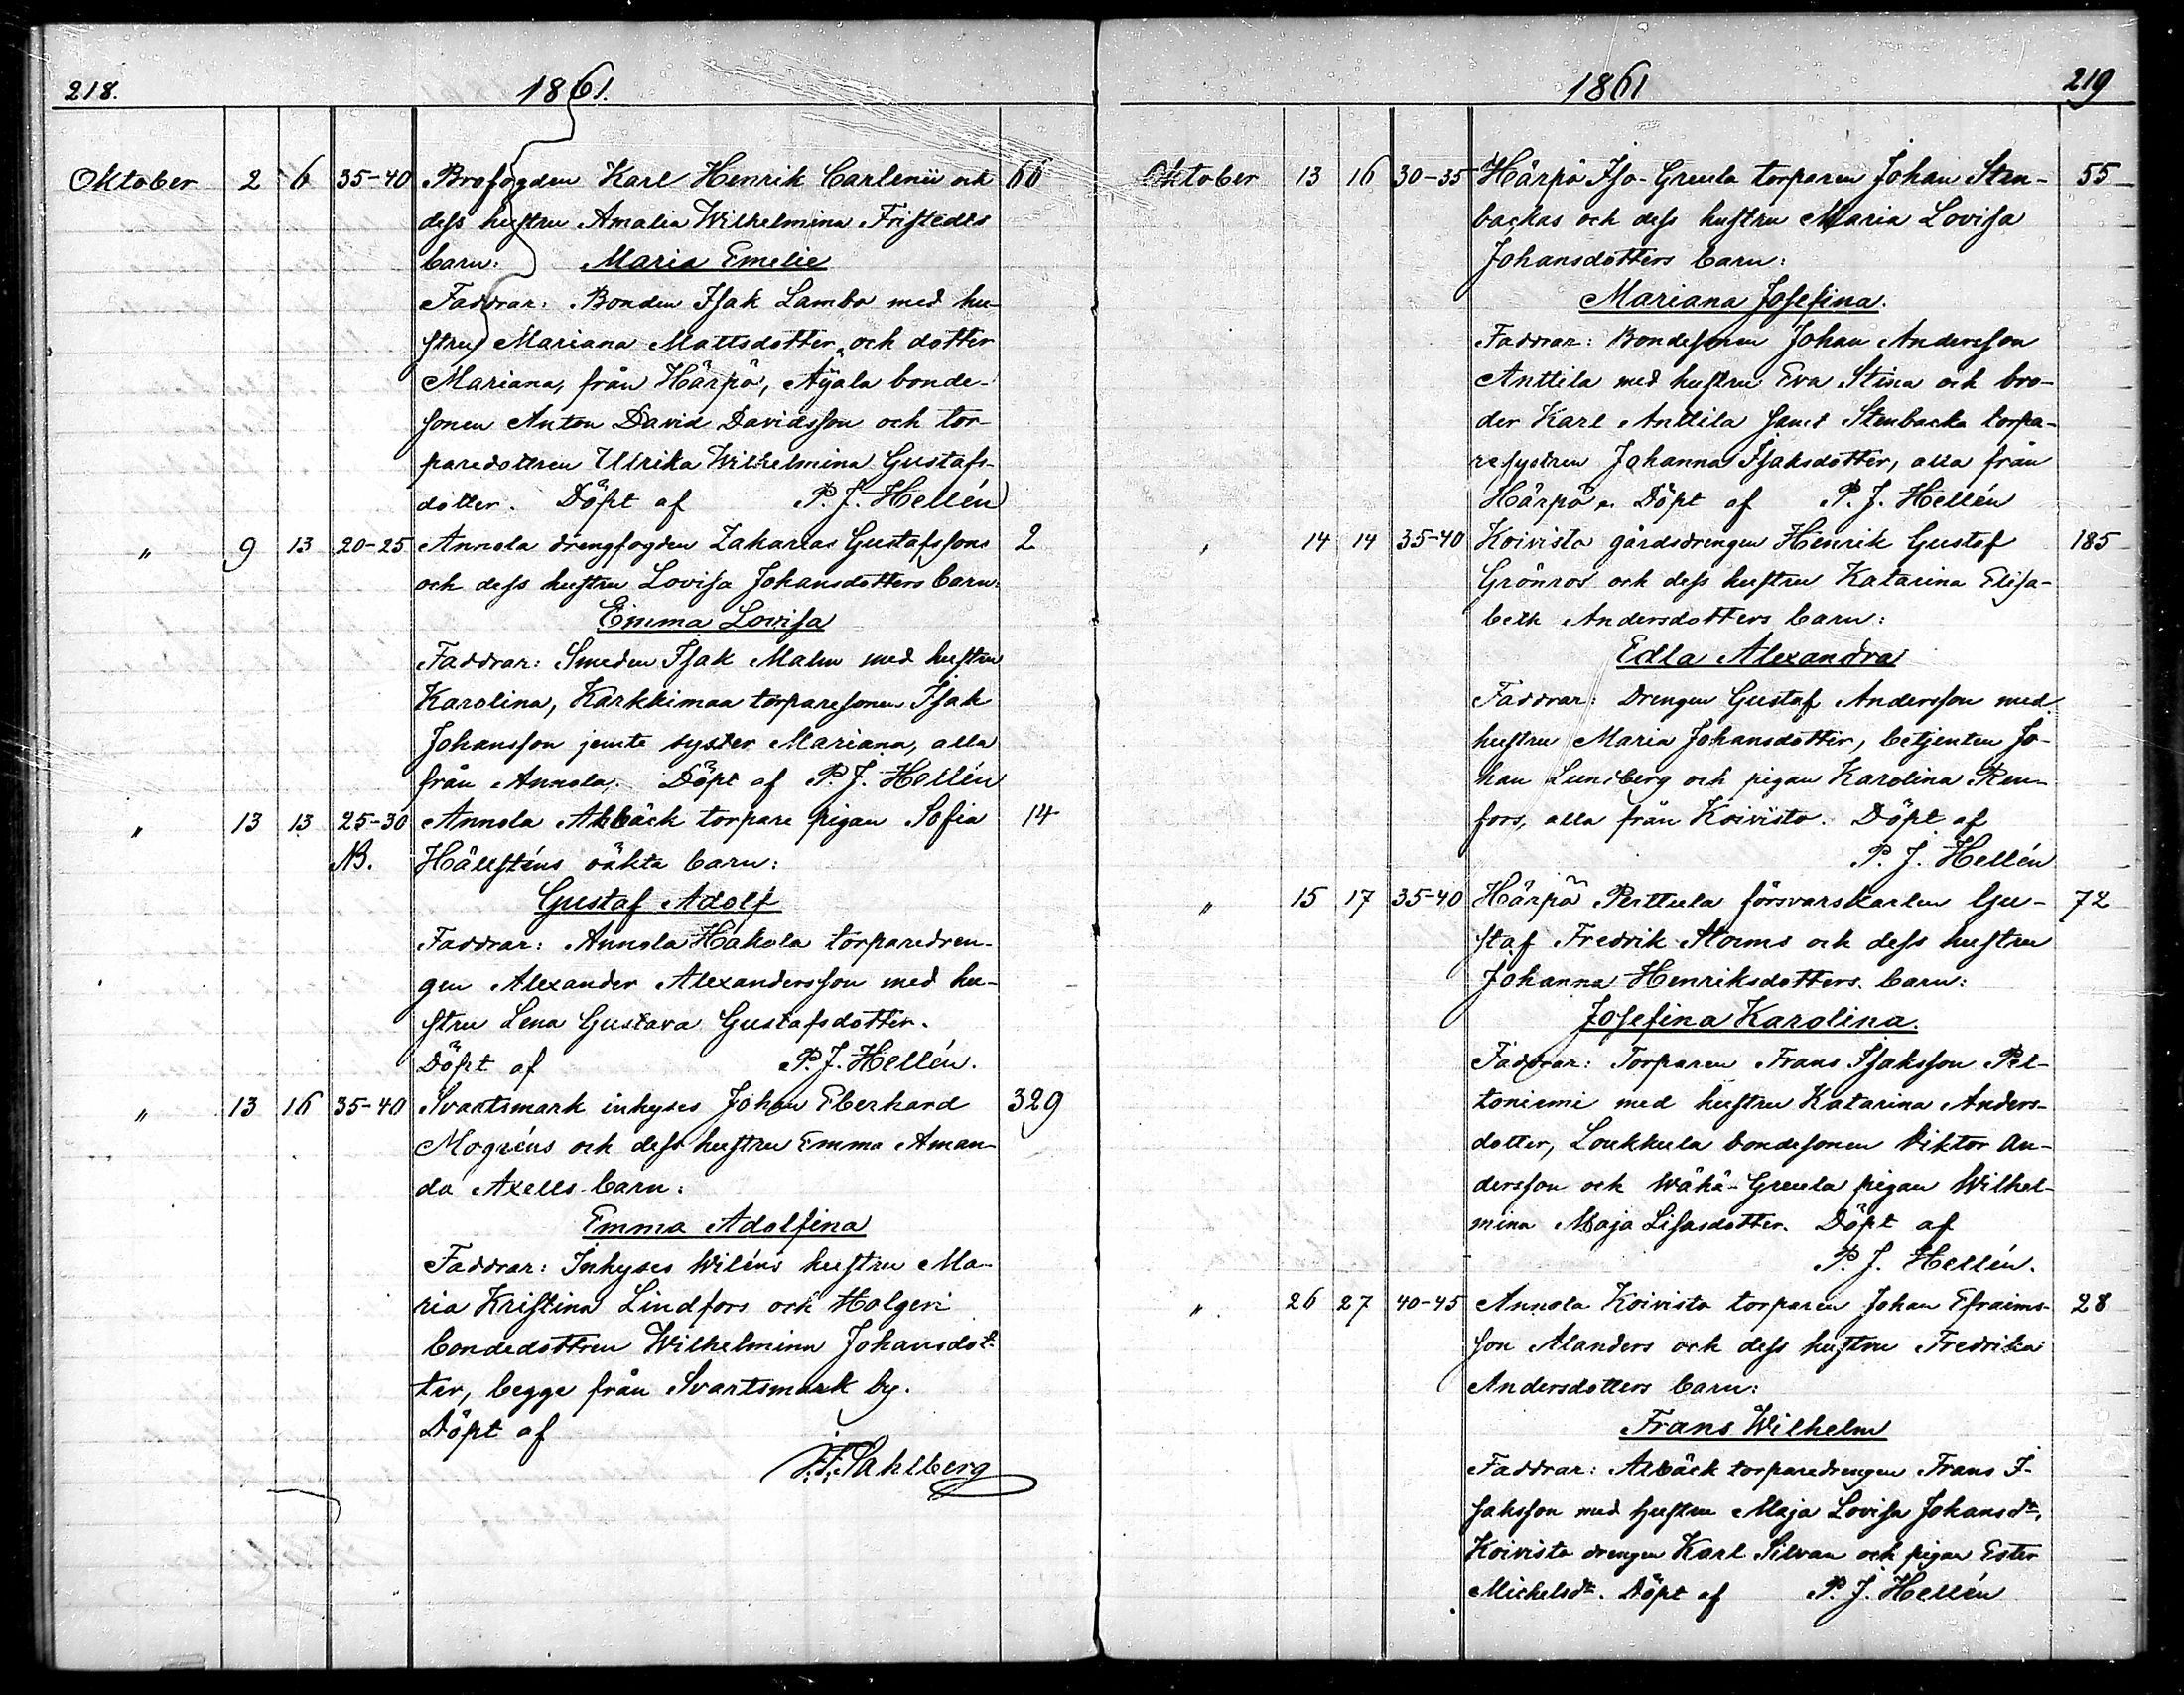 218. 1861.
Oktober 2 6 35-40 Brofogden Karl Henrik Carlenii och 66
dess hustru Amalia Wilhelmina Fristedts
barn: Maria Emelie
Faddrar: Bonden Isak Lambo med hu-
stru Mariana Mattsdotter och dotter
Mariana, från Härpö, Äijälä bonde-
sonen Anton David Davidsson och tor-
paredottren Ulrika Wilhelmina Gustafs-
dotter. Döpt af P. J. Hellén
" 9 13 20-25 Annola drengfogden Zakarias Gustafssons 2
och dess hustru Lovisa Johansdotters barn:
Emma Lovisa
Faddrar: Smeden Isak Malm med hustru
Karolina, Karkkimaa torparesonen Isak
Johansson jemte syster Mariana, alla
från Annola. Döpt af P. J. Hellén
" 13 13 25-30 Annola Albäck torpare pigan Sofia 14
NB. Hällsténs oäkta barn:
Gustaf Adolf
Faddrar: Annola Hakola torparedren-
gen Alexander Alexandersson med hu-
stru Lena Gustava Gustafsdotter.
Döpt af P. J. Hellén.
" 13 16 35-40 Svartsmark inhyses Johan Eberhard 329
Mogréns och dess hustru Emma Aman-
da Axells barn:
Emma Adolfina
Faddrar: Inhyses Wiléns hustru Ma-
ria Kristina Lindfors och Holgeri
bondedottren Wilhelmina Johansdot-
ter, begge från Svartsmark by.
Döpt af
F. F. Sahlberg
1861 219
Oktober 13 16 30-35 Härpö Iso-Greula torparen Johan Sten- 55
backas och dess hustru Maria Lovisa
Johansdotters barn:
Mariana Josefina.
Faddrar: Bondesonen Johan Andersson
Anttila med hustru Eva Stina och bro-
der Karl Anttila samt Stenbacka torpa-
resystren Johanna Isaksdotter, alla från
Härpö. Döpt af P. J. Hellén
" 14 14 35-40 Koivisto gårdsdrengen Henrik Gustaf 185
Grönroos och dess hustru Katarina Elisa-
beth Andersdotters barn:
Edla Alexandra
Faddrar: Drengen Gustaf Andersson med
hustru Maria Johansdotter, betjenten Jo-
han Lundberg och pigan Karolina Ren-
fors, alla från Koivisto. Döpt af
P. J. Hellén
" 15 17 35-40 Härpö Perttula försvarskarlen Gu- 72
staf Fredrik Storms och dess hustru
Johanna Henriksdotters barn:
Josefina Karolina.
Faddrar: Torparen Frans Isaksson Pel-
toniemi med hustru Katarina Anders-
dotter, Loukkula bondesonen Viktor An-
dersson och Wähä-Greula pigan Wilhel-
mina Maja Lisasdotter. Döpt af
P. J. Hellén.
" 26 27 40-45 Annola Koivisto torparen Johan Efraims- 28
son Alanders och dess hustru Fredrika
Andersdotters barn:
Frans Wilhelm
Faddrar: Albäck torparedrengen Frans I-
saksson med hustru Maja Lovisa Johansdr,
Koivisto drengen Karl Silvan och pigan Ester
Michelsdr. Döpt af P. J. Hellén